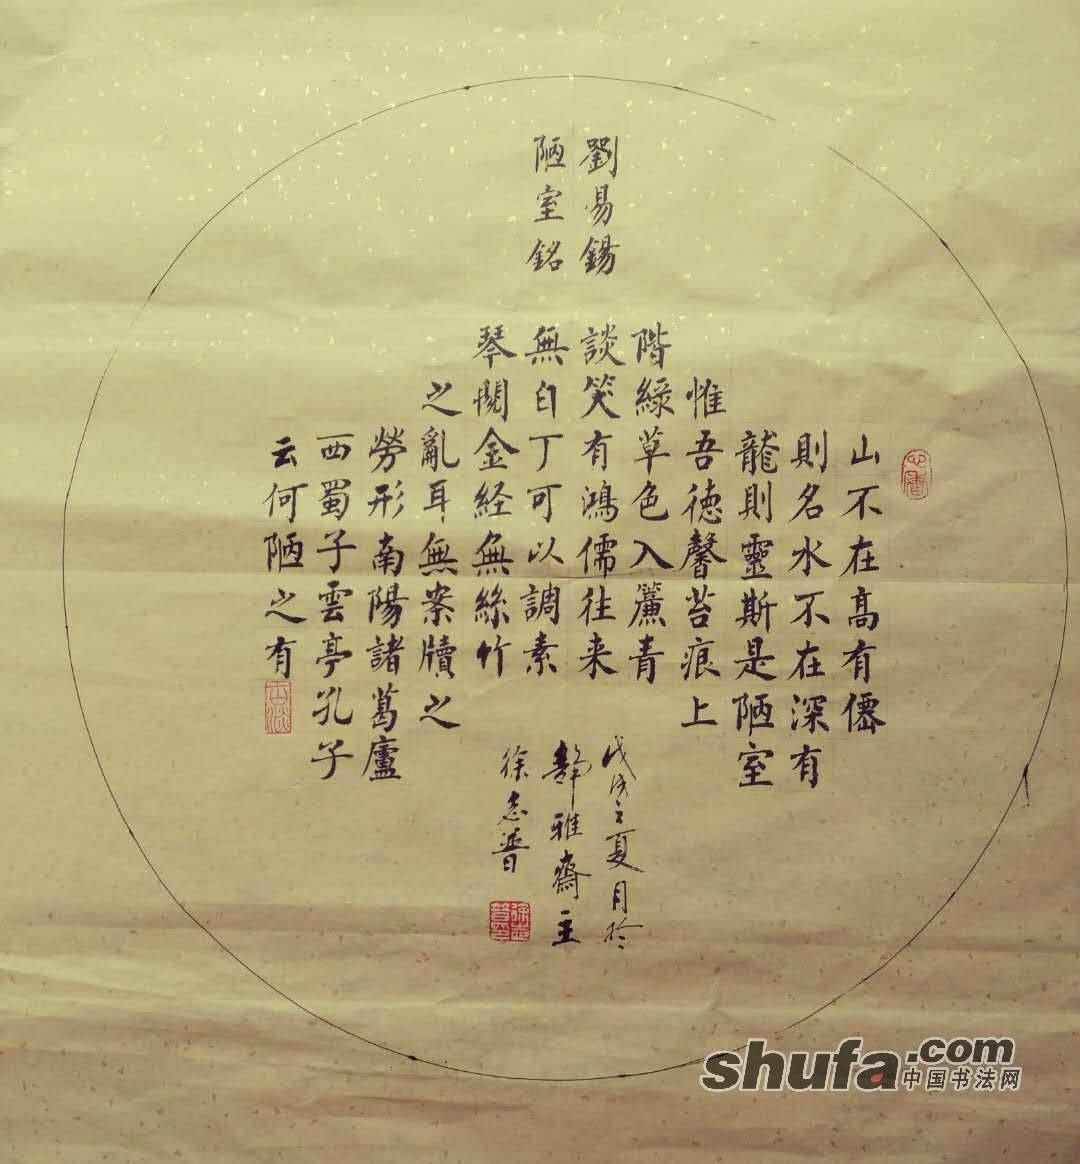 劉易錫
陋室銘
山不在高有僊
則名水不在深有
龍則靈斯是陋室
惟吾德馨苔痕上
階綠草色入簾青
談笑有鴻儒往来
無白丁可以調素
琴閱金経無絲竹
之亂耳無案牘之
勞形南陽諸葛廬
西蜀子雲亭孔子
云何陋之有
戊戌之夏月於
靜雅齋主
徐志普
shufa.com
中国书法网